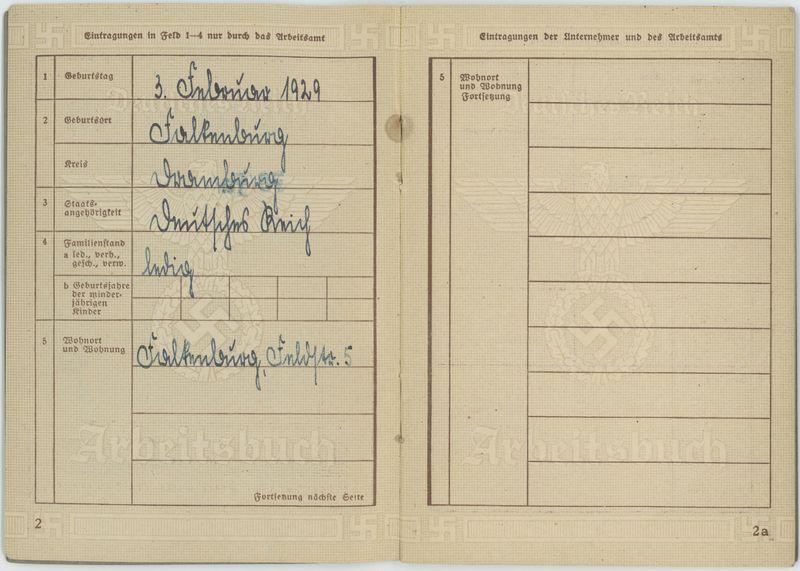 Eintragungen in Feld 1—4 nur durch das Arbeitsamt
1 Geburtstag 3. Februar 1929
2 Geburtsort Falkenburg
Kreis Dramburg
3 Staats-
angehörigkeit Deutsches Reich
4 Familienstand
a led., verh.,
gesch., verw. ledig
b Geburtsjahre
der minder-
jährigen
Kinder
5 Wohnort
und Wohnung Falkenburg, Feldstr. 5
Fortsetzung nächste Seite
Arbeitsbuch
2
Eintragungen der Unternehmer und des Arbeitsamts
5 Wohnort
und Wohnung
Fortsetzung
Deutsches Reich
Arbeitsbuch
2a